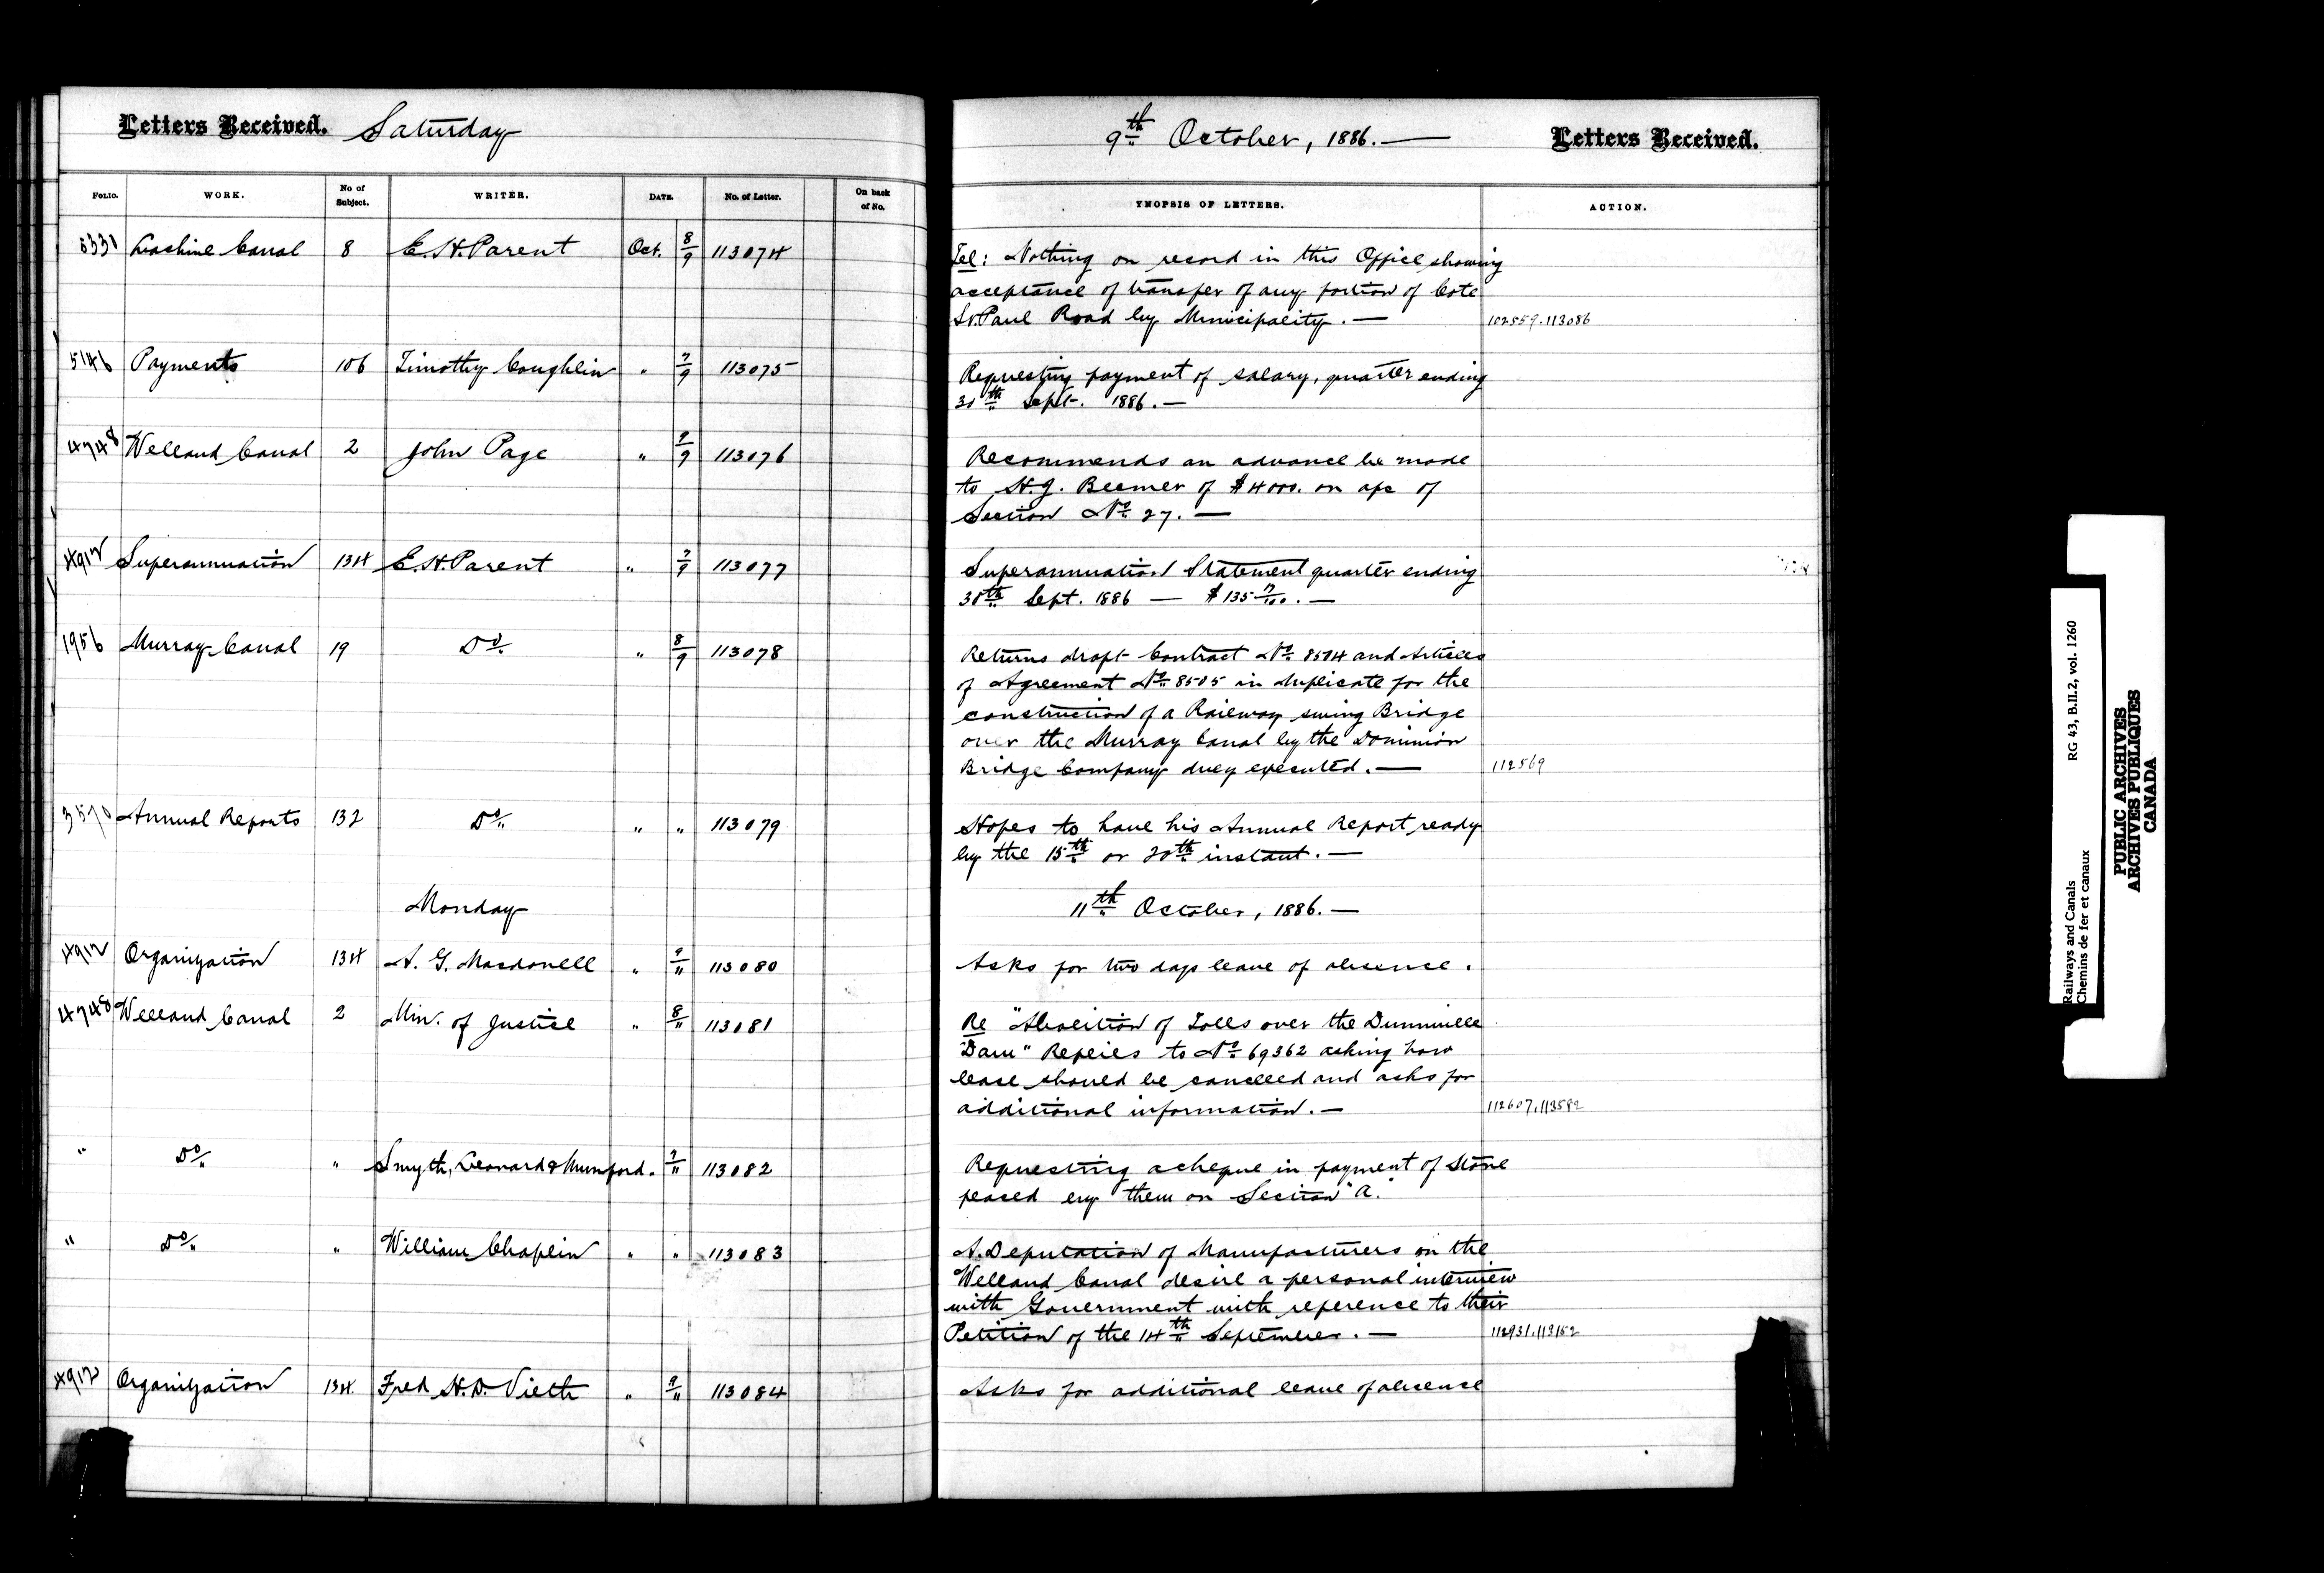 Letters Received. Saturday 9th October, 1886. — Letters Received.
FOLIO. WORK. No of Subject. WRITER. DATE. No. of Letter. On back of No. YNOPSIS OF LETTERS. ACTION.
5331 Lachine Canal 8 E.H. Parent Oct. 8/9 113074 Tel: Nothing on record in this Office showing
acceptance of transfer of any portion of Cote
St. Paul Road by Municipality. — 102559. 113086
5146 Payments 106 Timothy Coughlin " 7/9 113075 Requesting payment of salary, quarter ending
30th Sept. 1886. —
4748 Welland Canal 2 John Page " 9/9 113076 Recommends an advance be made
to H.J. Beemer of $4000. on a/c of
Section No. 27. —
4912 Superannuation 134 E.H. Parent " 7/9 113077 Superannuation Statement quarter ending
30th Sept. 1886 — $135 —
1956 Murray Canal 19 Do. " 8/9 113078 Returns draft Contract No. 8504 and Articles
of Agreement No. 8505 in duplicate for the
construction of a Railway swing Bridge
over the Murray Canal by the Dominion
Bridge Company duly executed. — 112569
3570 Annual Reports 132 Do. " " 113079 Hopes to have his Annual Report ready
by the 15th or 20th instant. —
Monday 11th October, 1886. —
4912 Organization 134 A. G. Macdonell " 9/11 113080 Asks for two days leave of absence.
4748 Welland Canal 2 Min. of Justice " 8/11 113081 Re "Abolition of Tolls over the Dunnville
Dam" Replies to No. 69362 asking how
lease should be cancelled and asks for
additional information. — 112607. 113582
" Do. " Smyth, Leonard & Mumford. 7/11 113082 Requesting a cheque in payment of stone
placed by them on Section "A."
" Do. " William Chaplin " " 113083 A Deputation of Manufacturers on the
Welland Canal desire a personal interview
with Government with reference to their
Petition of the 14th September. — 112931. 113152
4912 Organization 134. Fred H.D. Vieth " 9/11 113084 Asks for additional leave of absence
Railways and Canals RG 43, B.III.2, vol. 1260
Chemins de fer et canaux
PUBLIC ARCHIVES
ARCHIVES PUBLIQUES
CANADA